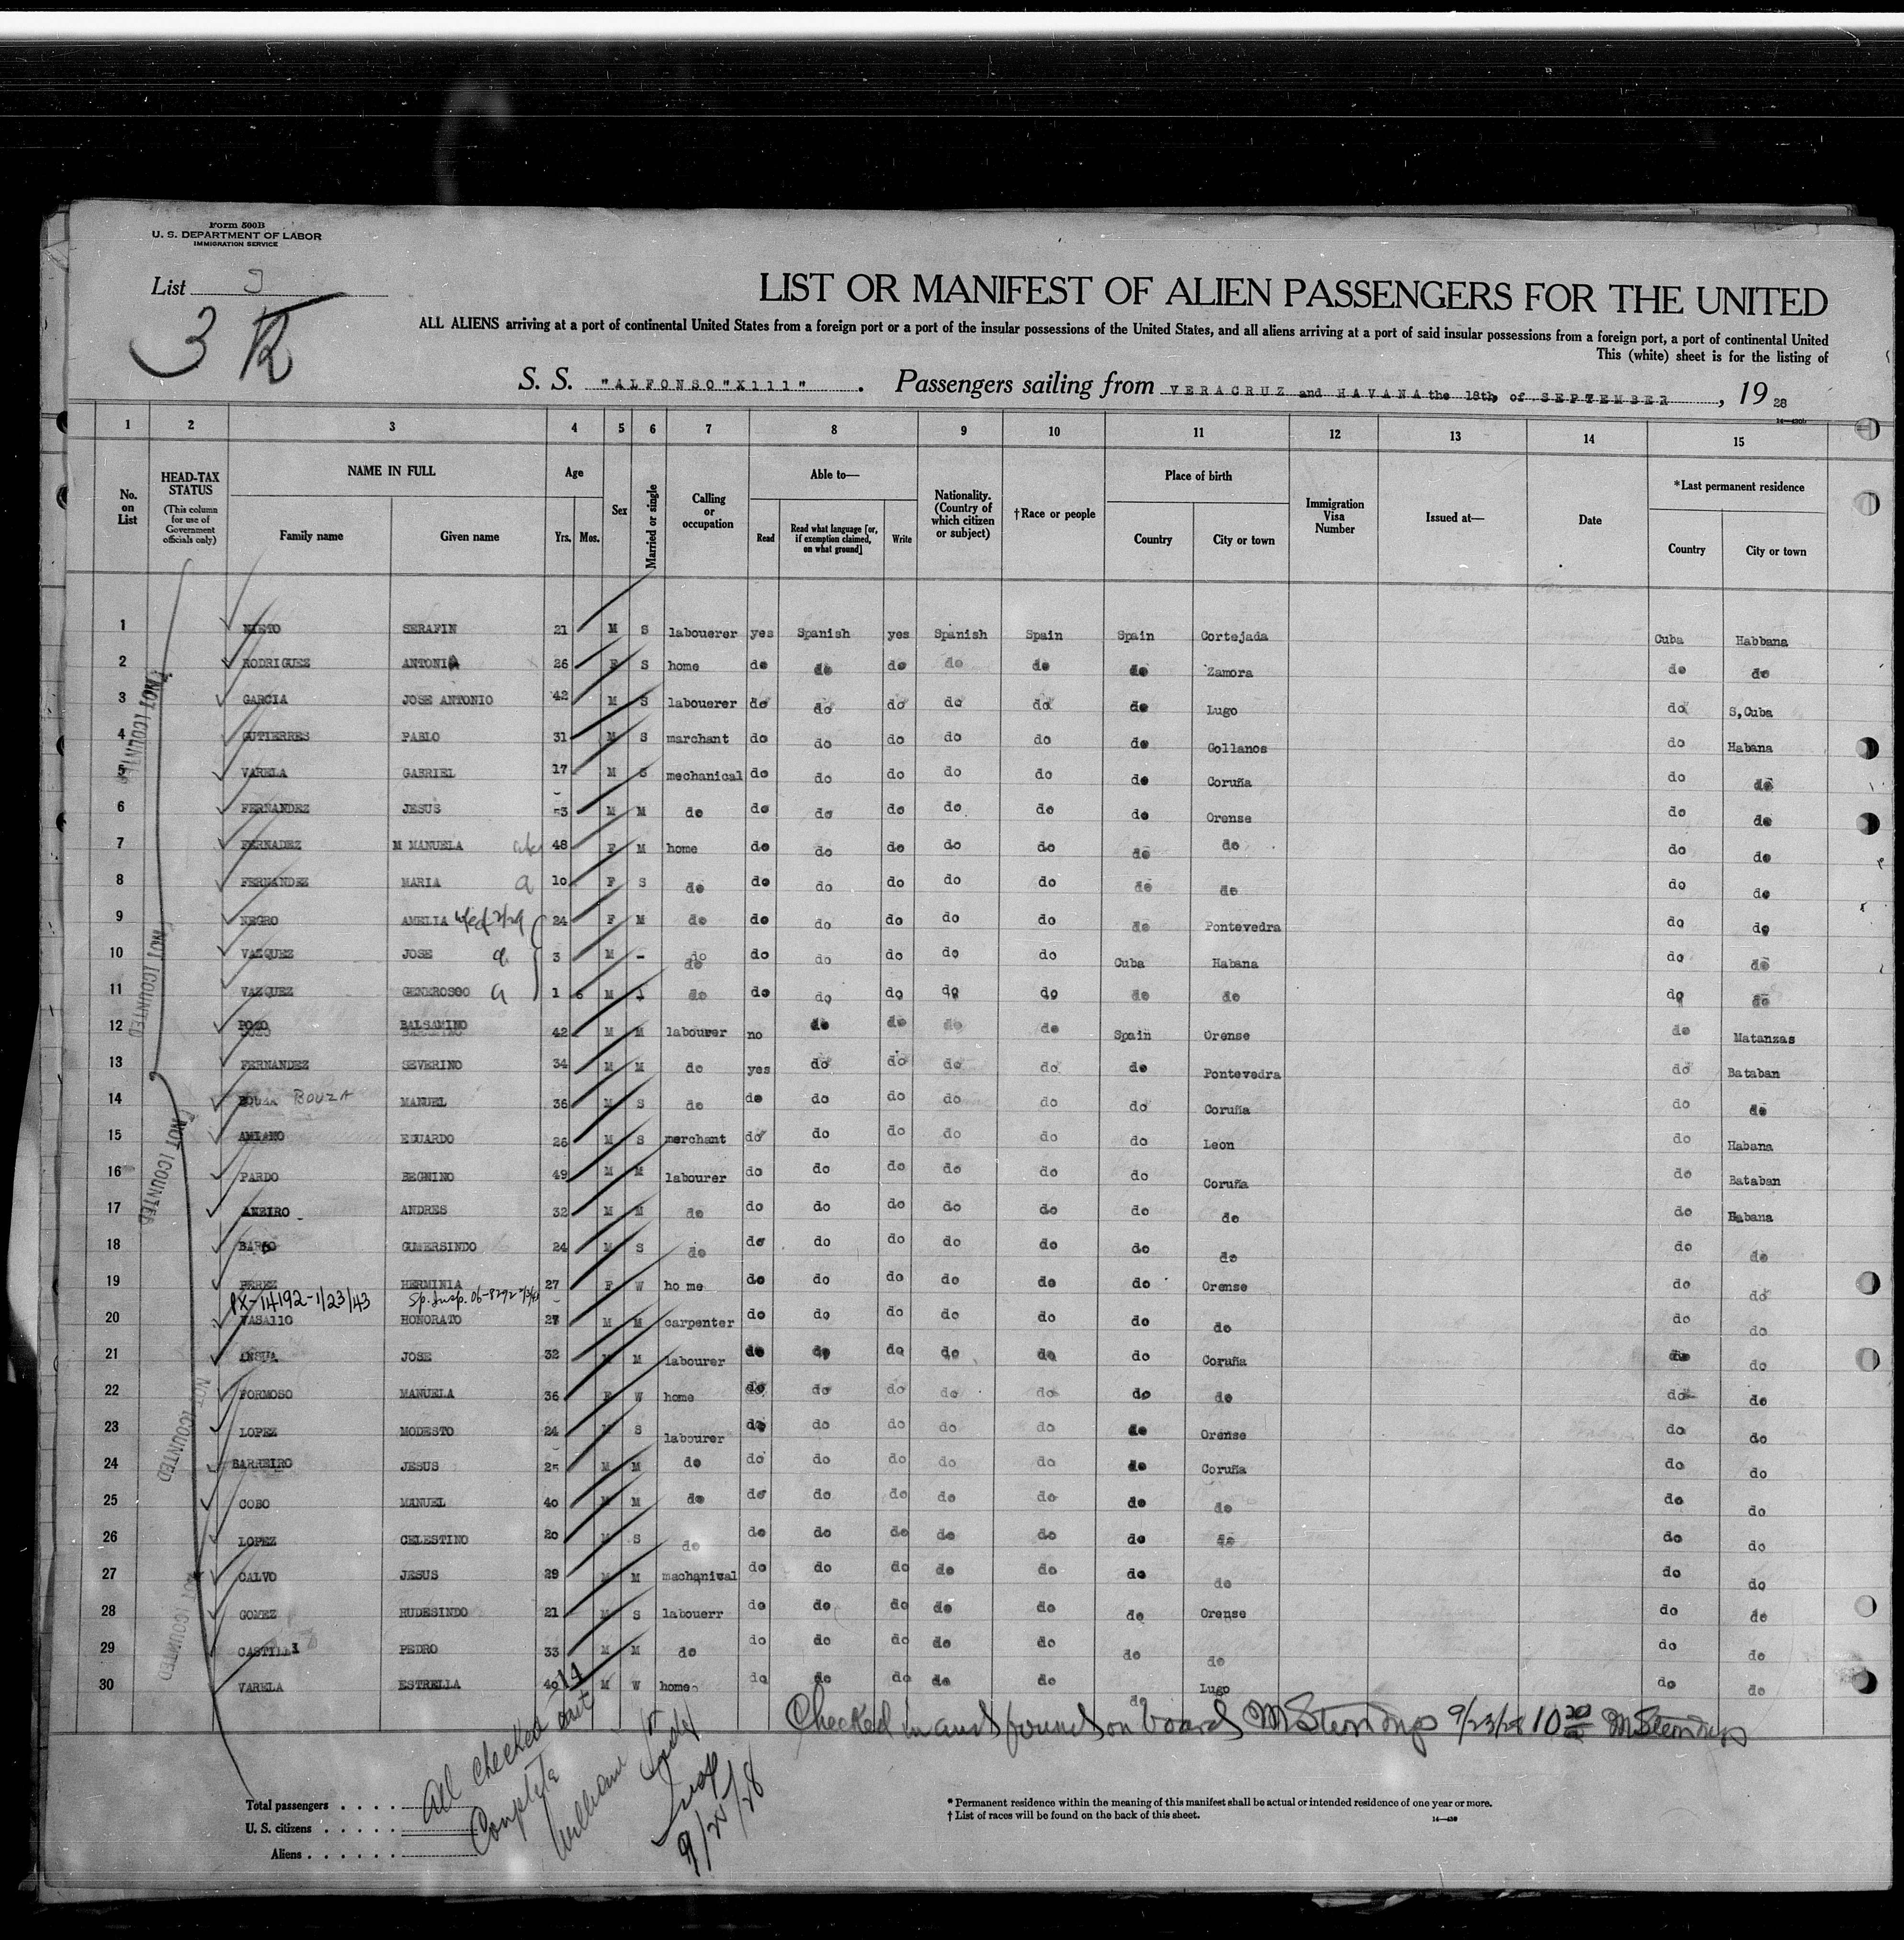 Form 500B
U. S. DEPARTMENT OF LABOR
IMMIGRATION SERVICE
List 3
3
LIST OR MANIFEST OF ALIEN PASSENGERS FOR THE UNITED
ALL ALIENS arriving at a port of continental United States from a foreign port or a port of the insular possessions of the United States, and all aliens arriving at a port of said insular possessions from a foreign port, a port of continental United
This (white) sheet is for the listing of
S. S. "ALFONSO"X111" . Passengers sailing from VERACRUZ and HAVANA the 18th, of SEPTEMBER , 19 28
1 2 3 4 5 6 7 8 9 10 11 12 13 14 15
No. on List
HEAD-TAX STATUS (This column for use of Government officials only)
NAME IN FULL Family name Given name
Age Yrs. Mos.
Sex
Married or single
Calling or occupation
Able to— Read Read what language [or, if exemption claimed, on what ground] Write
Nationality. (Country of which citizen or subject)
†Race or people
Place of birth Country City or town
Immigration Visa Number
Issued at—
Date
*Last permanent residence Country City or town
1 NIETO SERAFIN 21 M S labouerer yes Spanish yes Spanish Spain Spain Cortejada Cuba Habbana
2 RODRIGUEZ ANTONIA 26 F S home do do do do do do Zamora do do
3 GARCIA JOSE ANTONIO 42 M S labouerer do do do do do do Lugo do S,Cuba
4 GUTIERRES PABLO 31 M S marchant do do do do do do Gollanos do Habana
5 VARELA GABRIEL 17 M S mechanical do do do do do do Coruña do do
6 FERNANDEZ JESUS 53 M M do do do do do do do Orense do do
7 FERNADEZ M MANUELA 48 F M home do do do do do do do do do
8 FERNANDEZ MARIA a 10 F S do do do do do do do do do do
9 NEGRO AMELIA 24 F M do do do do do do do Pontevedra do do
10 VAZQUEZ JOSE a 3 M - do do do do do do Cuba Habana do do
11 VAZQUEZ GENEROSGO a 1 6 M do do do do do do do do do do
12 POZO BALSAMINO 42 M M labourer no do do do do Spain Orense do Matanzas
13 FERNANDEZ SEVERINO 34 M M do yes do do do do do Pontevedra do Bataban
14 BOUZA MANUEL 36 M S do do do do do do do Coruña do do
15 AMIANO EDUARDO 26 M S merchant do do do do do do Leon do Habana
16 PARDO BEGNINO 49 M M labourer do do do do do do Coruña do Bataban
17 ANEIRO ANDRES 32 M M do do do do do do do do do Habana
18 GUMERSINDO 24 M S do do do do do do do do do do
19 PEREZ HERMINIA 27 F W ho me do do do do do do Orense do do
PX-14192-1/23/43
20 VASALLO HONORATO 27 M M carpenter do do do do do do do do do
21 JOSE 32 M M labourer do do do do do do Coruña do do
22 FORMOSO MANUELA 36 F W home do do do do do do do do do
23 LOPEZ MODESTO 24 M S labourer do do do do do do Orense do do
24 BARREIRO JESUS 25 M M do do do do do do do Coruña do do
25 COBO MANUEL 40 M M do do do do do do do do do do
26 LOPEZ CELESTINO 20 M S do do do do do do do do do do
27 CALVO JESUS 29 M M machanival do do do do do do do do do
28 GOMEZ RUDESINDO 21 M S labouerr do do do do do do Orense do do
29 PEDRO 33 M M do do do do do do do do do do
30 VARELA ESTRELLA 40 M W home do do do do do do Lugo do do
NOT COUNTED
NOT COUNTED
NOT COUNTED
NOT COUNTED
NOT COUNTED
Checked in and found on board 9/23/28 10
All checked out
Complete
William
Insp
Total passengers
U. S. citizens
Aliens
* Permanent residence within the meaning of this manifest shall be actual or intended residence of one year or more.
† List of races will be found on the back of this sheet.
14—430